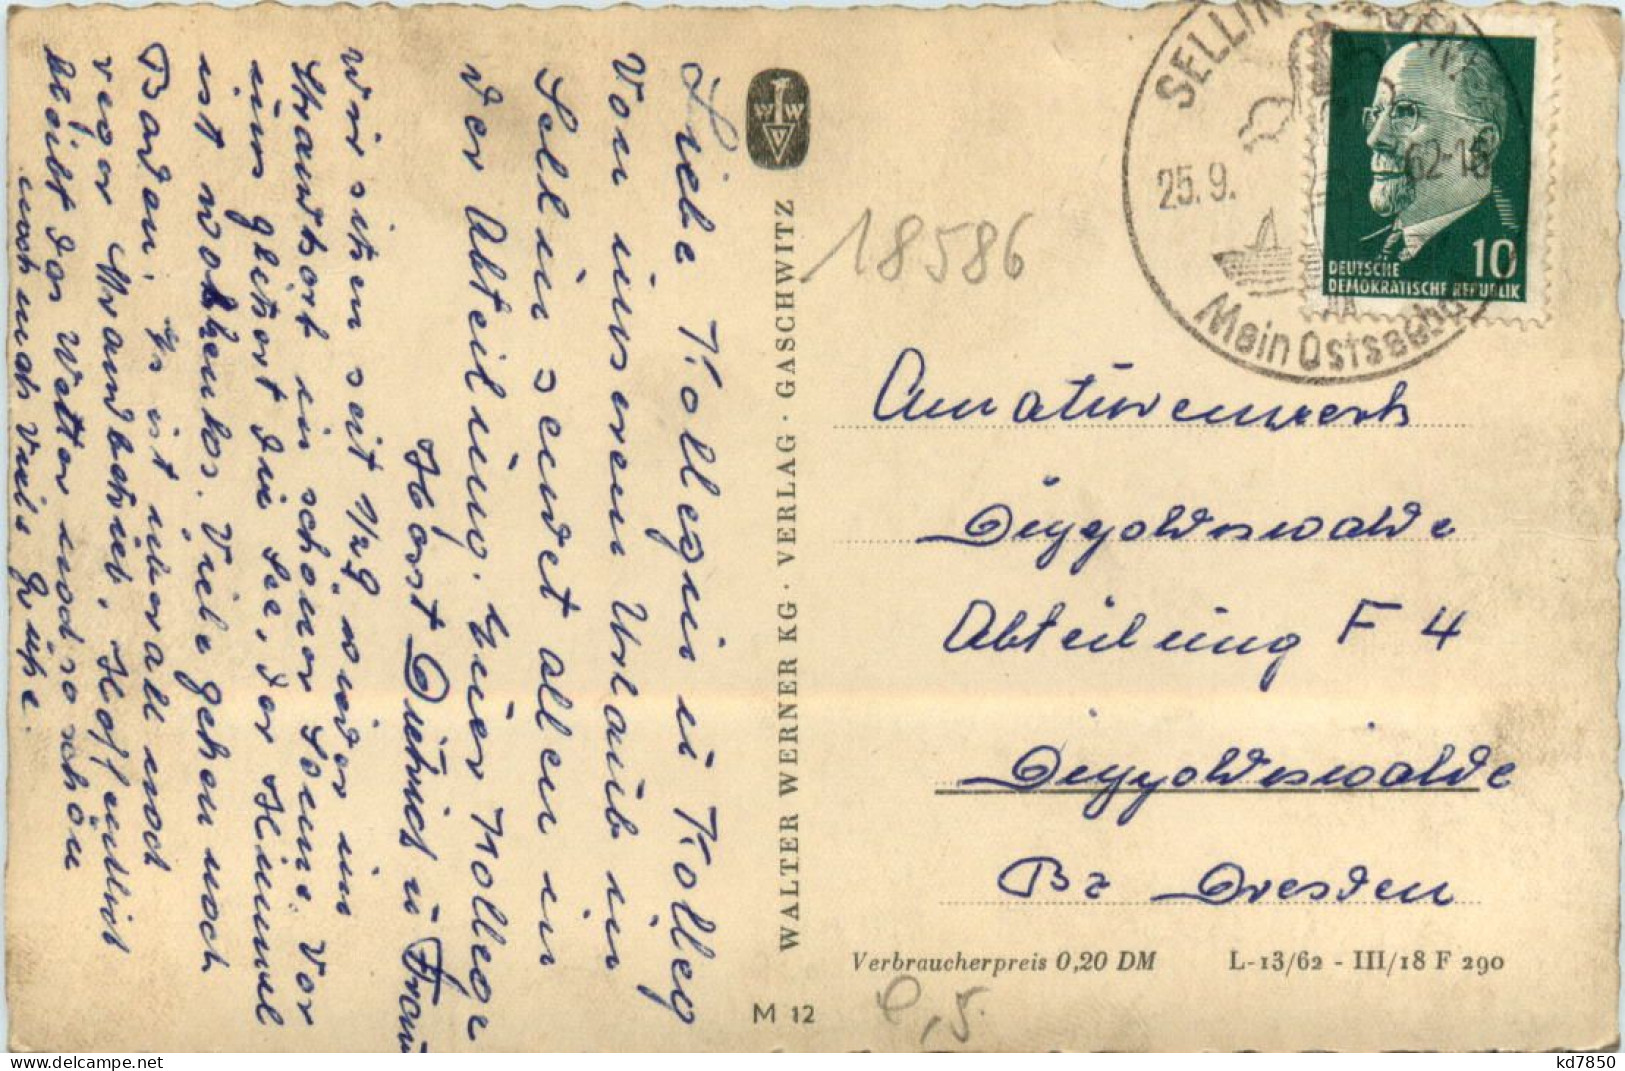 Liebe Kollegin u Kolleg
Von unseren Urlaub in
Sellin sendet allen in
der Abteilung. Euer Kollege
Horst u Frau
wir sitzen seit 1/2 9 wieder im
Strandkorb in schöner Sonne. Vor
uns glitzert die See, der Himmel
ist wolkenlos. Viele gehen noch
Baden. Es ist überall noch
reger Strandbetrieb. Hoffentlich
bleibt das Wetter noch so schön
nochmals viele Grüße.
WVW
WALTER WERNER KG · VERLAG · GASCHWITZ
M 12
18586
SELLIN
25.9. 62-18
Mein Ostseebad
10
DEUTSCHE
DEMOKRATISCHE REPUBLIK
Armaturenwerk
Dippoldiswalde
Abteilung F 4
Dippoldiswalde
Bz Dresden
Verbraucherpreis 0,20 DM L-13/62 - III/18 F 290
kd7850